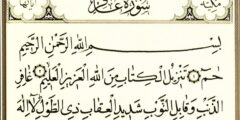 سُورَةُ غَافِرٍ
بِسْمِ اللَّهِ الرَّحْمَنِ الرَّحِيمِ
حمٓ تَنزِيلُ الْكِتَابِ مِنَ اللَّهِ الْعَزِيزِ الْعَلِيمِ غَافِرِ
الذَّنبِ وَقَابِلِ التَّوْبِ شَدِيدِ الْعِقَابِ ذِي الطَّوْلِ لَا إِلَهَ